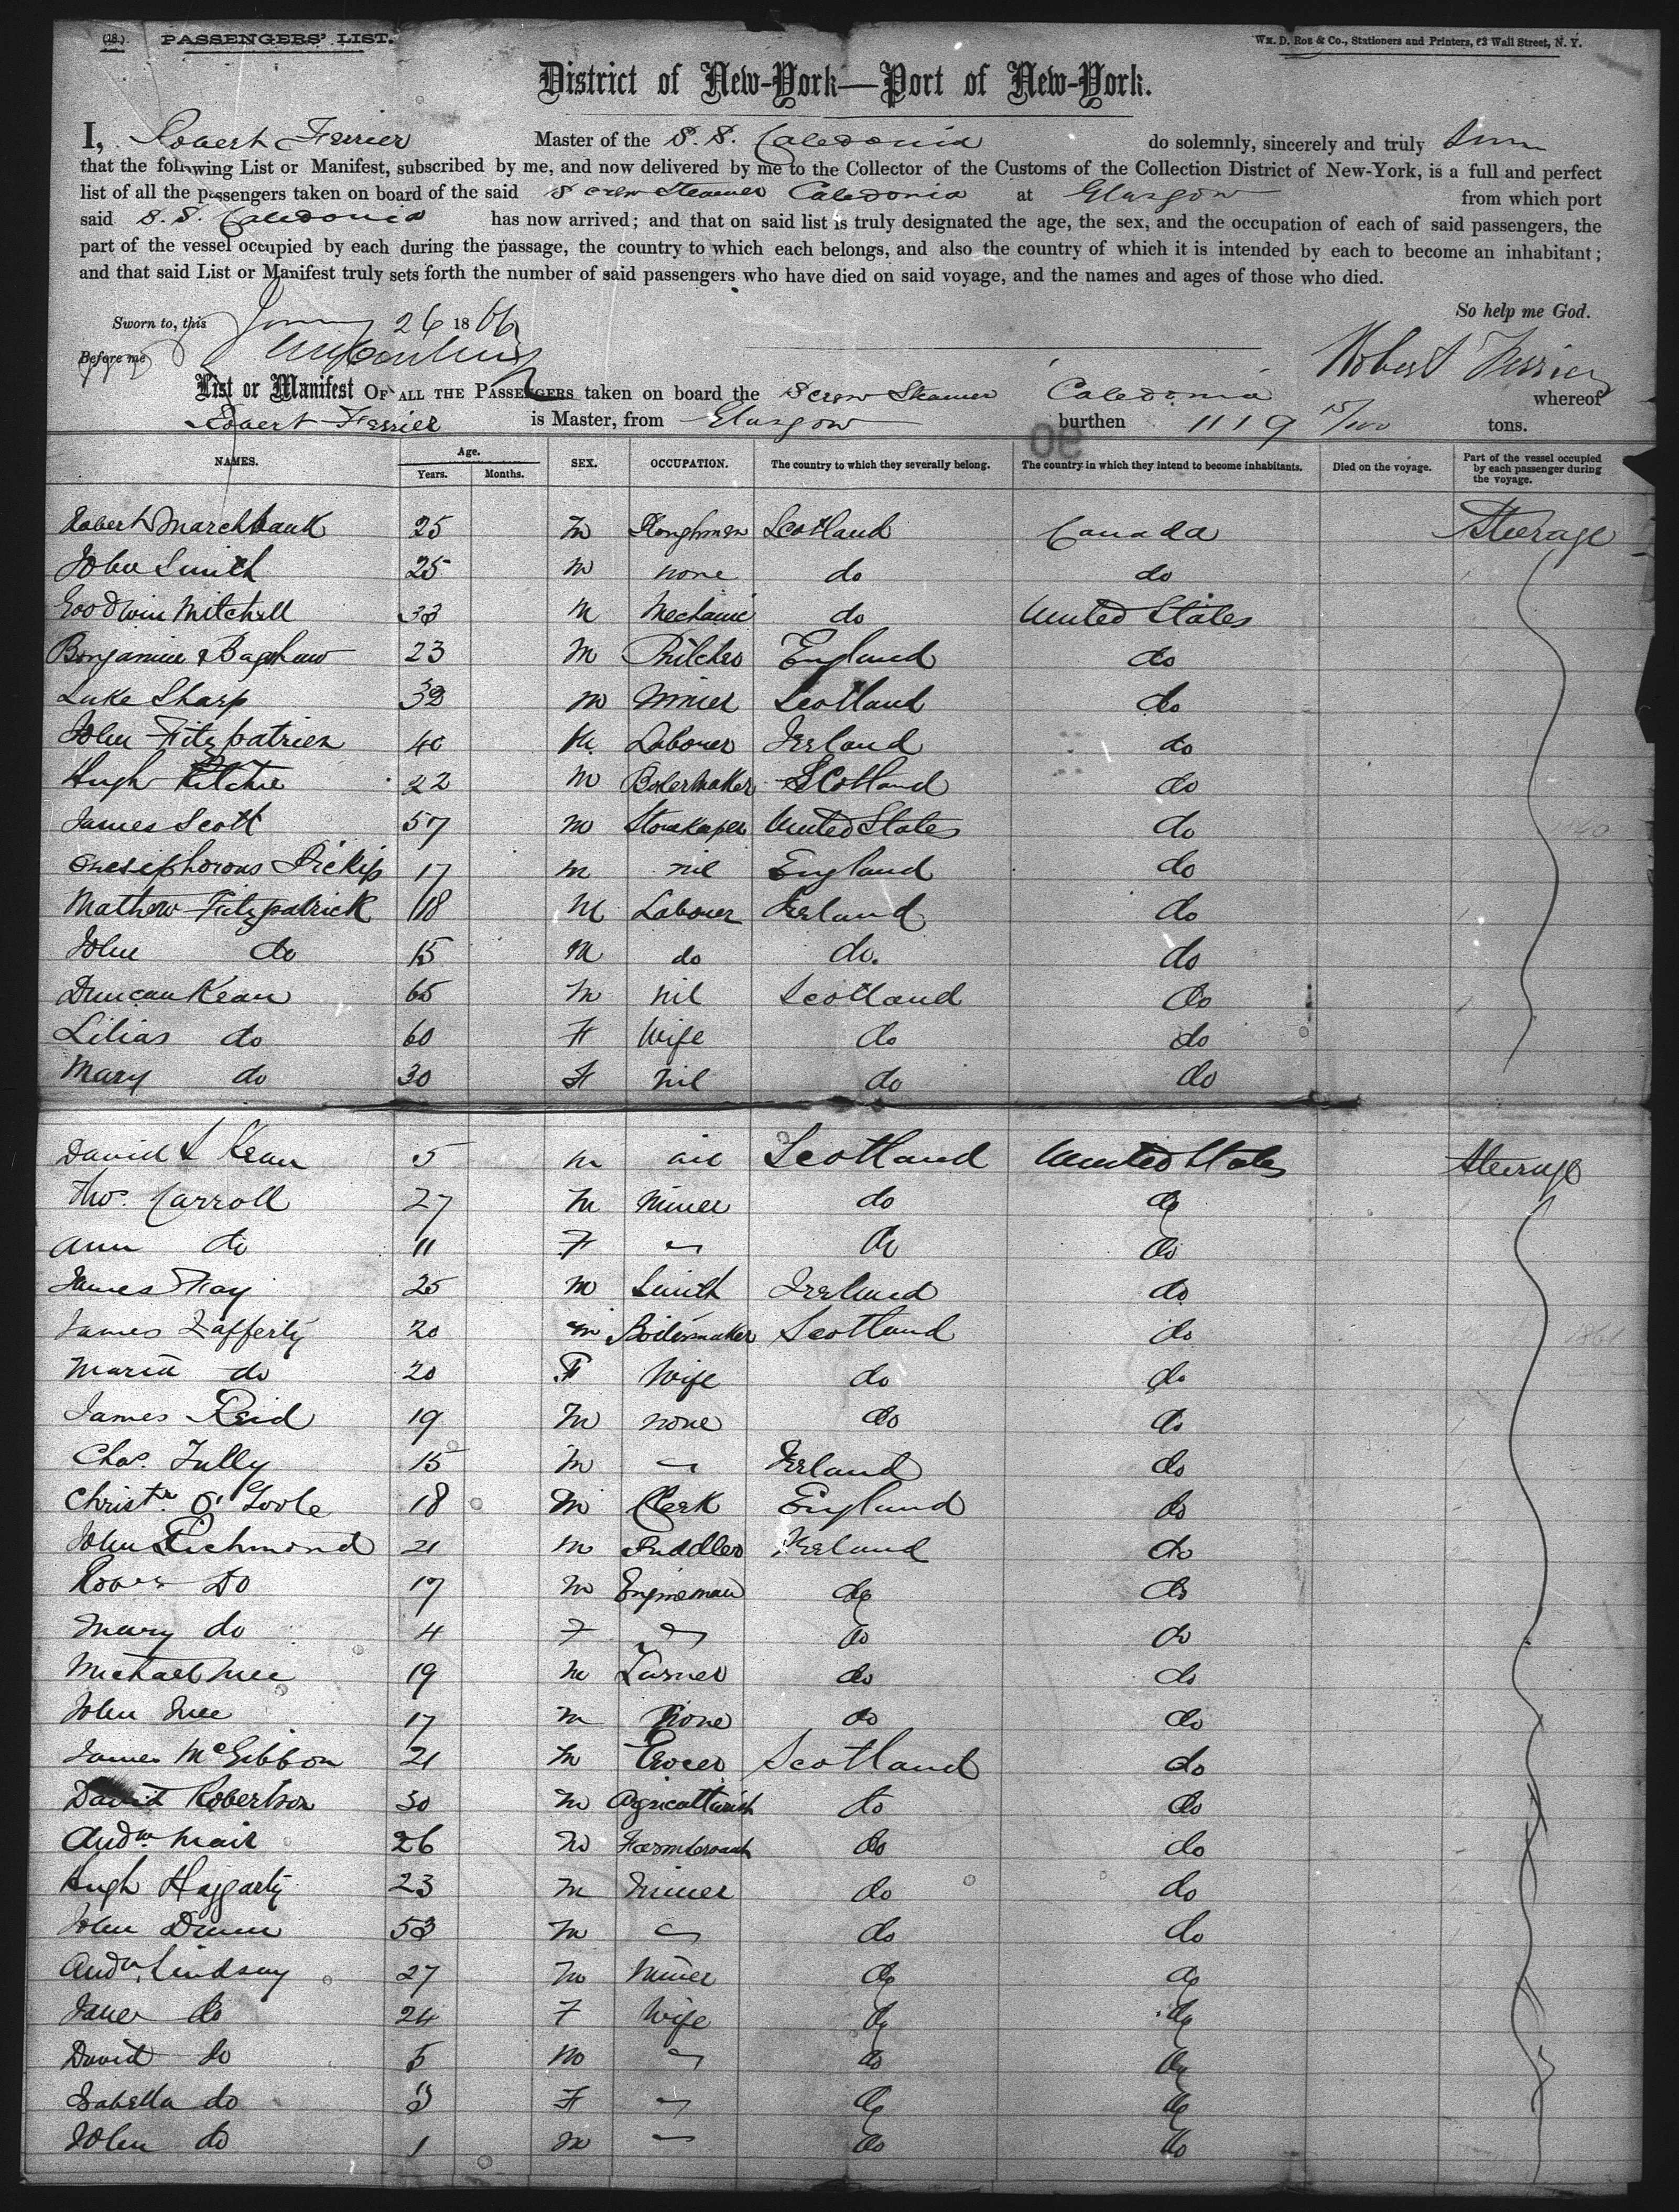 (18.) PASSENGERS' LIST. Wm. D. Roe & Co., Stationers and Printers, 82 Wall Street, N. Y.
District of New-York—Port of New-York.
I, Robert Ferrier Master of the S. S. Caledonia do solemnly, sincerely and truly
that the following List or Manifest, subscribed by me, and now delivered by me to the Collector of the Customs of the Collection District of New-York, is a full and perfect
list of all the passengers taken on board of the said Screw Steamer Caledonia at Glasgow from which port
said S. S. Caledonia has now arrived; and that on said list is truly designated the age, the sex, and the occupation of each of said passengers, the
part of the vessel occupied by each during the passage, the country to which each belongs, and also the country of which it is intended by each to become an inhabitant;
and that said List or Manifest truly sets forth the number of said passengers who have died on said voyage, and the names and ages of those who died.
So help me God.
Sworn to, this 26 1866
Before me Robert Ferrier
List or Manifest OF ALL THE PASSENGERS taken on board the Screw Steamer Caledonia whereof
Robert Ferrier is Master, from Glasgow burthen 1119 15/100 tons.
NAMES. Age. Years. Months. SEX. OCCUPATION. The country to which they severally belong. The country in which they intend to become inhabitants. Died on the voyage. Part of the vessel occupied by each passenger during the voyage.
Robert Marchbank 25 M Ploughman Scotland Canada Steerage
John Smith 25 M none do do
Goodwin Mitchell 33 M Mechanic do United States
Benjamin Bagshaw 23 M England do
Luke Sharp 32 M Miner Scotland do
John Fitzpatrick 40 M Labourer Ireland do
Hugh Ritchie 22 M Boilermaker Scotland do
James Scott 57 M Storekeeper United States do
Onesiphorous Pickip 17 M nil England do
Mathew Fitzpatrick 18 M Labourer Ireland do
John do 15 M do do. do
Duncan Kean 65 M nil Scotland do
Lilias do 60 F Wife do do
Mary do 30 F nil do do
David S Kean 5 M nil Scotland United States Steerage
Thos. Carroll 27 M Miner do do
Ann do 11 F " do do
James Hay 25 M Smith Ireland do
James Lafferty 20 M Boilermaker Scotland do
Maria do 20 F Wife do do
James Reid 19 M none do do
Chas. Tully 15 M " Ireland do
Christr. O'Toole 18 M Clerk England do
John Richmond 21 M Puddler Ireland do
Robert Do 17 M Engineman do do
Mary do 4 F " do do
Michael Mee 19 M Turner do do
John Mee 17 M None do do
James McGibbon 21 M Grocer Scotland do
David Robertson 30 M Agriculturist do do
Andw. Mair 26 M Farmservant do do
Hugh Haggarty 23 M Miner do do
John Dunn 53 M " do do
Andw. Lindsay 27 M Miner do do
Janet do 24 F Wife do do
David do 5 M " do do
Isabella do 3 F " do do
John do 1 M " do do